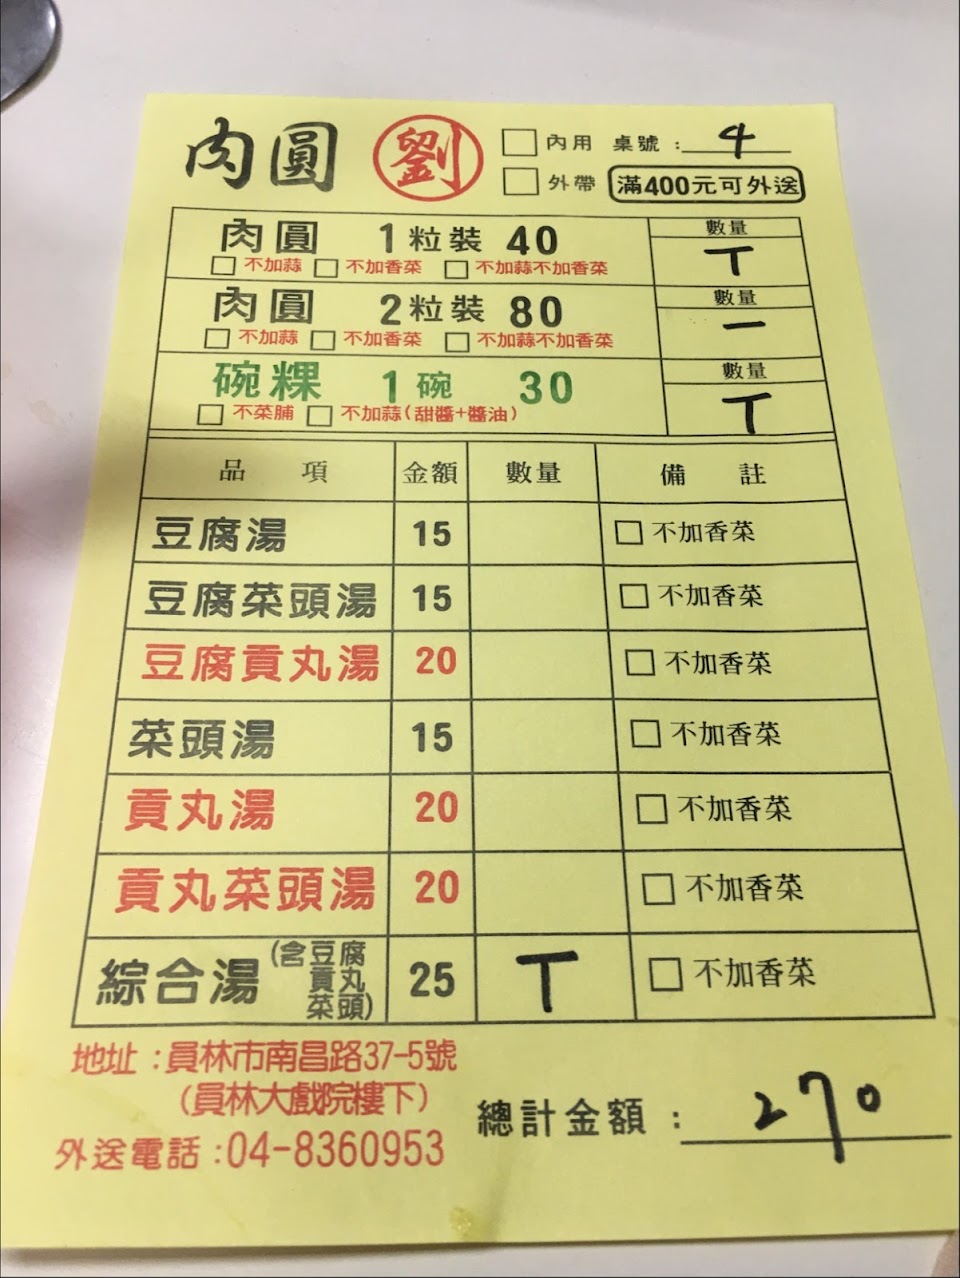 肉圓 劉 □內用 桌號：4
□外帶 滿400元可外送
肉圓 1粒裝 40 數量 T
□不加蒜 □不加香菜 □不加蒜不加香菜
肉圓 2粒裝 80 數量 一
□不加蒜 □不加香菜 □不加蒜不加香菜
碗粿 1碗 30 數量 T
□不菜脯 □不加蒜(甜醬+醬油)
品項 金額 數量 備註
豆腐湯 15 □不加香菜
豆腐菜頭湯 15 □不加香菜
豆腐貢丸湯 20 □不加香菜
菜頭湯 15 □不加香菜
貢丸湯 20 □不加香菜
貢丸菜頭湯 20 □不加香菜
綜合湯(含豆腐貢丸菜頭) 25 T □不加香菜
地址：員林市南昌路37-5號
(員林大戲院樓下)
總計金額：270
外送電話：04-8360953